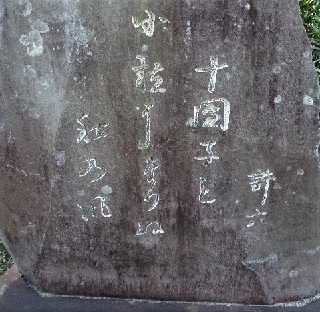 許六
十団子も
小粒になりぬ
秋乃風